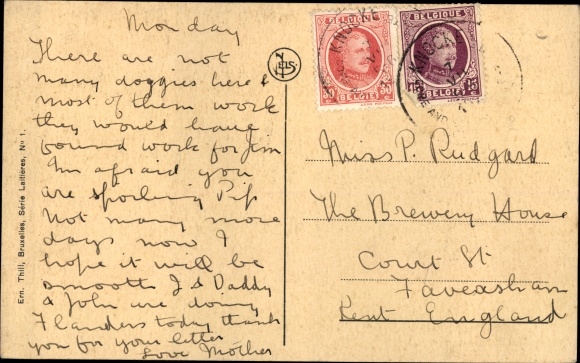 Monday
There are not
many doggies here &
most of them work
they would have
found work for Jim
Im afraid you
are spoiling Pip
Not many more
days now I
hope it will be
smooth I & Daddy
& John are doing
Flanders today thank
you for your letter
Love Mother
NELS
Ern. Thill, Bruxelles, Série Laitières, No 1.
BELGIQUE
30 30
BELGIË
BELGIQUE
15 15
BELGIË
KNOCKE
KNOCKE
Miss P. Rudgard
The Brewery House
Court St
Faversham
Kent England